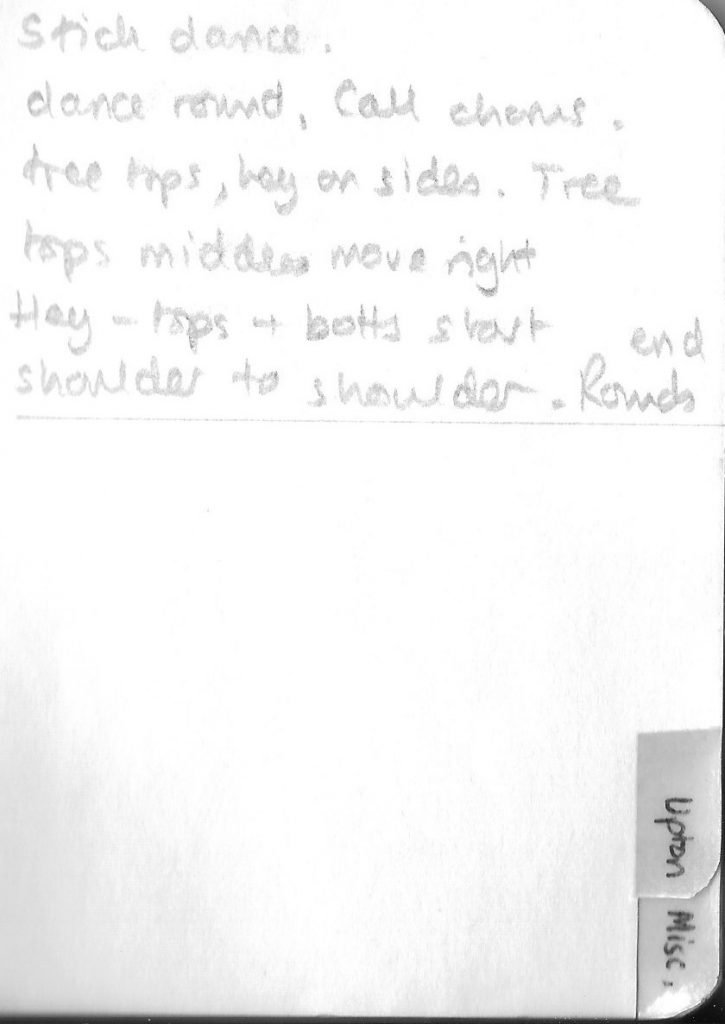 Stick dance.
dance round, Call chorus.
tree tops, hey on sides. Tree
tops middles move right
Hey - tops + botts start end
shoulder to shoulder. Rounds
Upton
Misc.